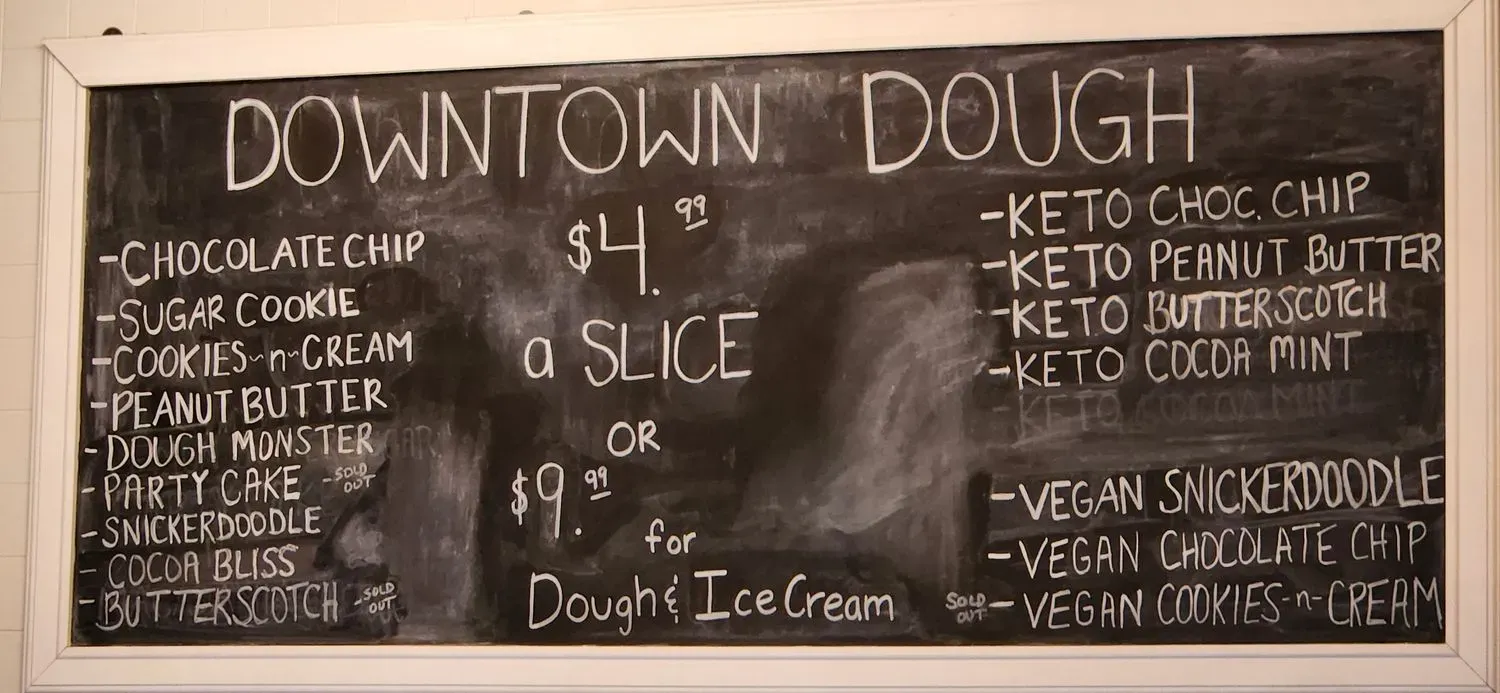 DOWNTOWN DOUGH
-CHOCOLATE CHIP
-SUGAR COOKIE
-COOKIES~n~CREAM
-PEANUT BUTTER
-DOUGH MONSTER
-PARTY CAKE -SOLD OUT
-SNICKERDOODLE
-COCOA BLISS
-BUTTERSCOTCH -SOLD OUT
$4.99
a SLICE
OR
$9.99
for
Dough & Ice Cream
-KETO CHOC. CHIP
-KETO PEANUT BUTTER
-KETO BUTTERSCOTCH
-KETO COCOA MINT
KETO COCOA MINT
-VEGAN SNICKERDOODLE
-VEGAN CHOCOLATE CHIP
SOLD OUT -VEGAN COOKIES-n-CREAM